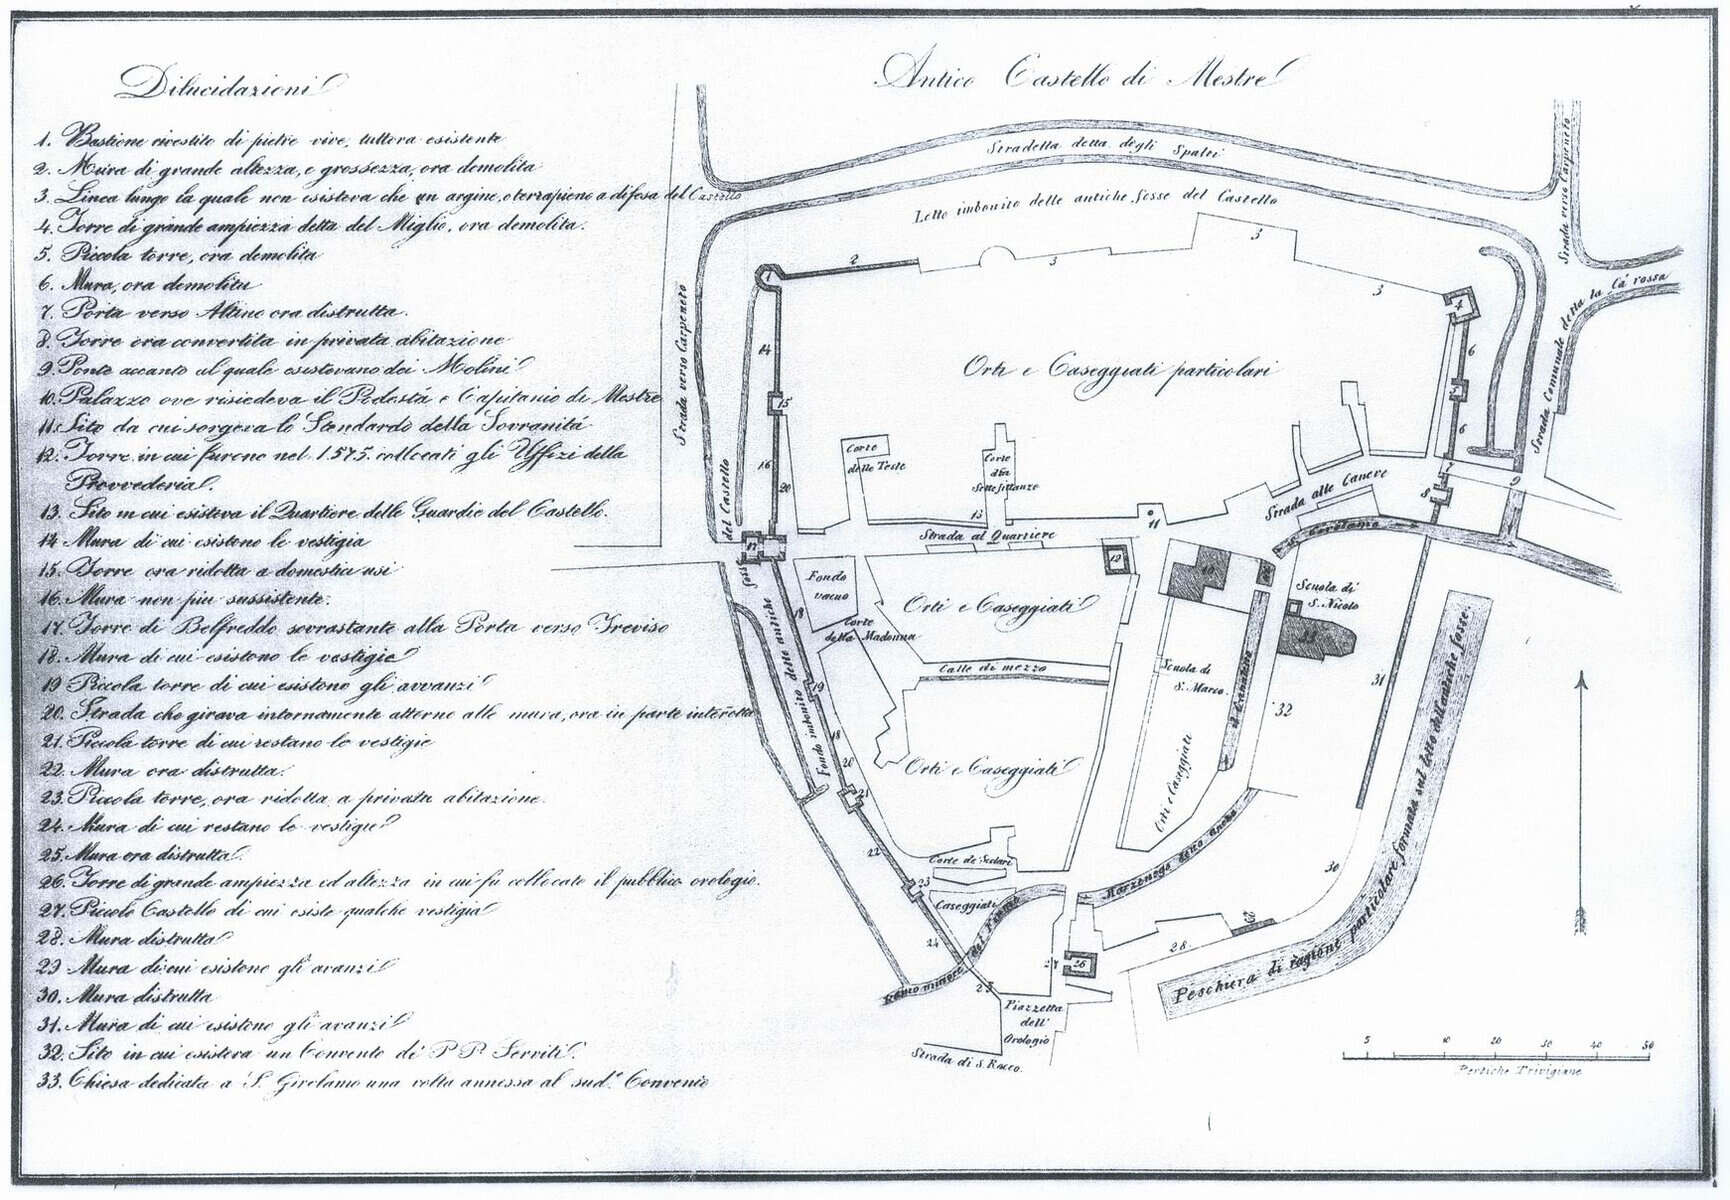 Dilucidazioni
1. Bastione rivestito di pietre vive, tuttora esistente
2. Mura di grande altezza, e grossezza, ora demolita
3. Linea lungo la quale non esisteva che un argine, o terrapieno a difesa del Castello
4. Torre di grande ampiezza detta del Miglio, ora demolita.
5. Piccola torre, ora demolita
6. Mura, ora demolita
7. Porta verso Altino ora distrutta.
8. Torre ora convertita in privata abitazione
9. Ponte accanto al quale esistevano dei Molini
10. Palazzo ove risiedeva il Podestá e Capitanio di Mestre
11. Sito da cui sorgeva lo Stendardo della Sovranitá
12. Torre in cui furono nel 1.575. collocati gli Uffizi della
Provvederia.
13. Sito in cui esisteva il Quartiere delle Guardie del Castello.
14. Mura di cui esistono le vestigia
15. Torre ora ridotta a domestici usi
16. Mura non piu sussistente.
17. Torre di Belfreddo sovrastante alla Porta verso Treviso
18. Mura di cui esistono le vestigie
19. Piccola torre di cui esistono gli avvanzi
20. Strada che girava internamente attorno alle mura, ora in parte interotta
21. Piccola torre di cui restano le vestigie
22. Mura ora distrutta.
23. Piccola torre, ora ridotta a privata abitazione.
24. Mura di cui restano le vestigie
25. Mura ora distrutta.
26. Torre di grande ampiezza ed altezza in cui fu collocato il pubblico orologio.
27. Piccolo Castello di cui esiste qualche vestigia
28. Mura distrutta
29. Mura di cui esistono gli avanzi
30. Mura distrutta
31. Mura di cui esistono gli avanzi
32. Sito in cui esisteva un Convento di P.P. Serviti.
33. Chiesa dedicata a S. Girolamo una volta annessa al sud.º Convento
Antico Castello di Mestre
Stradetta detta degli Spalti
Letto imbonito delle antiche fosse del Castello
Strada verso Carpeneto
Strada verso Carpeneto
Strada Comunale detta la Ca' rossa
1
2
3
3
3
4
6
5
6
7
8
9
14
15
16
20
17
Orti e Caseggiati particolari
Corte delle Teste
Corte
Settefittanze
13
Strada al Quartiere
11
Strada alle Caneve
Fosse del Castello
Fondo imbonito delle antiche
Fondo vacuo
Corte della Madonna
Orti e Caseggiati
12
10
S. Gerolamo
Scuola di S. Nicolo
33
Calle di mezzo
Scuola di S. Marco.
18
19
18
20
21
32
31
Orti e Caseggiati
Orti e Caseggiati
22
Corte de' Sectari
23
Caseggiati
24
25
Ramo minore del Fiume
Marzenego detto anche
30
29
28.
27
26
Peschiera di ragione particolare formata sul letto dell'antiche fosse
Piazzetta dell' Orologio
Strada di S. Rocco.
5 10 20 30 40 50
Pertiche Trivigiane